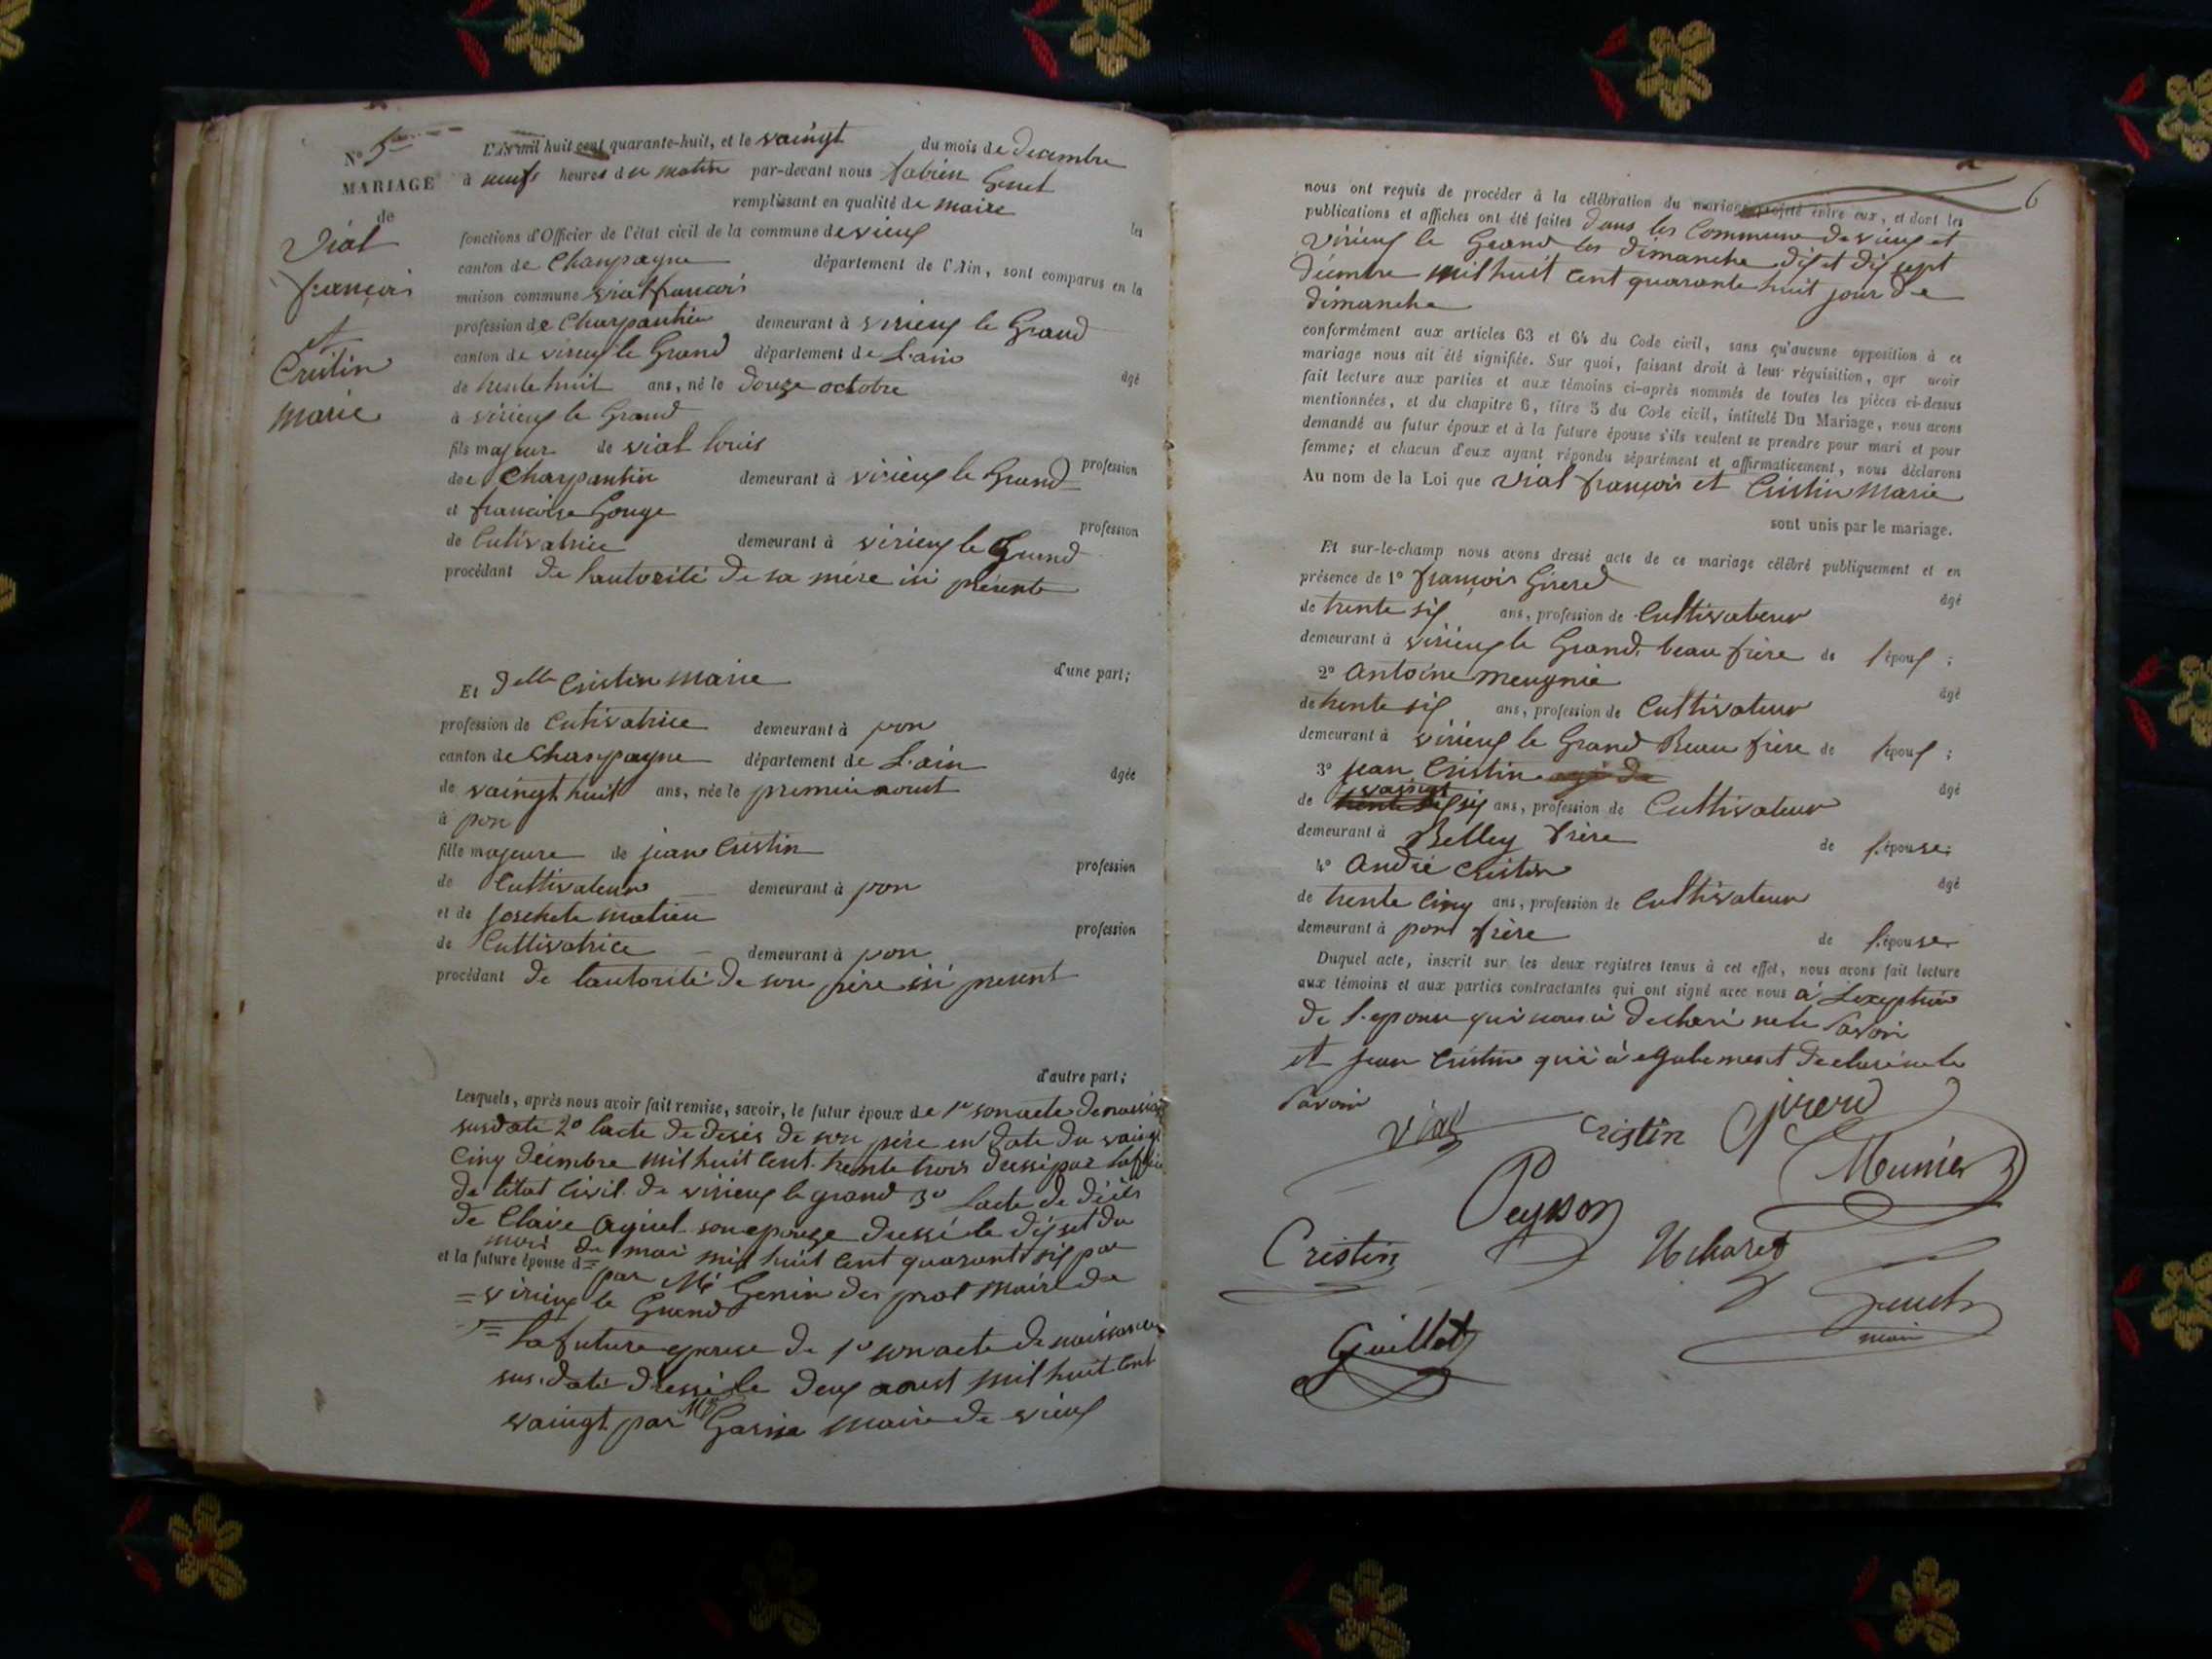 N° 5
MARIAGE
de
Vial
françois
et
Cristin
marie
L'An mil huit cent quarante-huit, et le vaingt du mois de decembre
à neufs heures du matin par-devant nous fabien
remplissant en qualité de maire les
fonctions d'Officier de l'état civil de la commune de vieux
canton de Champagne département de l'Ain, sont comparus en la
maison commune vial francois
profession de Charpantier demeurant à virieux le Grand
canton de virieux le Grand département de L'ain âgé
de trente huit ans, né le douze octobre
à virieux le Grand
fils majeur de vial louis profession
de Charpantier demeurant à virieux le Grand
et francoise Gouge profession
de Cutivatrice demeurant à virieux le Grand
procédant de lautorité de sa mère isi présente
d'une part;
Et delle Cristin marie
profession de Cutivatrice demeurant à pon
canton de Champagne département de L'ain âgée
de vaingt huit ans, née le premier aoust
à pon
fille majeure de jean Cristin profession
de Cultivateur demeurant à pon
et de josephete matieu profession
de Cultivatrice demeurant à pon
procédant de lautorité de son père isi present
d'autre part;
Lesquels, après nous avoir fait remise, savoir, le futur époux de 1° son acte de naissa
susdate 2° lacte de desès de son père en date du vaingt
Cinq désembre mil huit Cent trente trois dressé par
de létat Civil de virieux le grand 3° lacte de décès
de Claire son epouze dressé le disset du
mois de mai mil huit Cent quarant six par
et la future épouse d= par Mr Genin des prot maire de
= virieux le Grand
= la future epouse de 1° son acte de naissance
sus daté dressé le deux aoust mil huit Cent
vaingt par Mr maire de vieux
6
nous ont requis de procéder à la célébration du mariage projeté entre eux, et dont les
publications et affiches ont été faites dans les Commune de vieux et
virieux le Grand les dimanche dix et dix sept
décembre mil huit Cent quarante huit jour de
dimanche
conformément aux articles 63 et 64 du Code civil, sans qu'aucune opposition à ce
mariage nous ait été signifiée. Sur quoi, faisant droit à leur réquisition, apr avoir
fait lecture aux parties et aux témoins ci-après nommés de toutes les pièces ci-dessus
mentionnées, et du chapitre 6, titre 5 du Code civil, intitulé Du Mariage, nous avons
demandé au futur époux et à la future épouse s'ils veulent se prendre pour mari et pour
femme; et chacun d'eux ayant répondu séparément et affirmativement, nous déclarons
Au nom de la Loi que Vial françois et Cristin Marie
sont unis par le mariage.
Et sur-le-champ nous avons dressé acte de ce mariage célébré publiquement et en
présence de 1° françois Girerd âgé
de trente six ans, profession de Cultivateur
demeurant à virieux le Grand beau frère de l'époux ;
2° Antoine meugnié âgé
de trente six ans, profession de Cultivateur
demeurant à virieux le Grand Beau frère de l'époux ;
3° jean Cristin âgé
de vaingt six ans, profession de Cultivateur
demeurant à Belley frère de l'épouse;
4° André Cristin âgé
de trente Cinq ans, profession de Cultivateur
demeurant à pon frère de l'épouse
Duquel acte, inscrit sur les deux registres tenus à cet effet, nous avons fait lecture
aux témoins et aux parties contractantes qui ont signé avec nous à Lexeption
de l'epouse qui nous à declaré ne le savoir
et jean Cristin qui à egalement declaré ne le
savoir
Vial Cristin Girerd
Peysson Meunier
Cristin Ucharet
Guillot Genet
maire